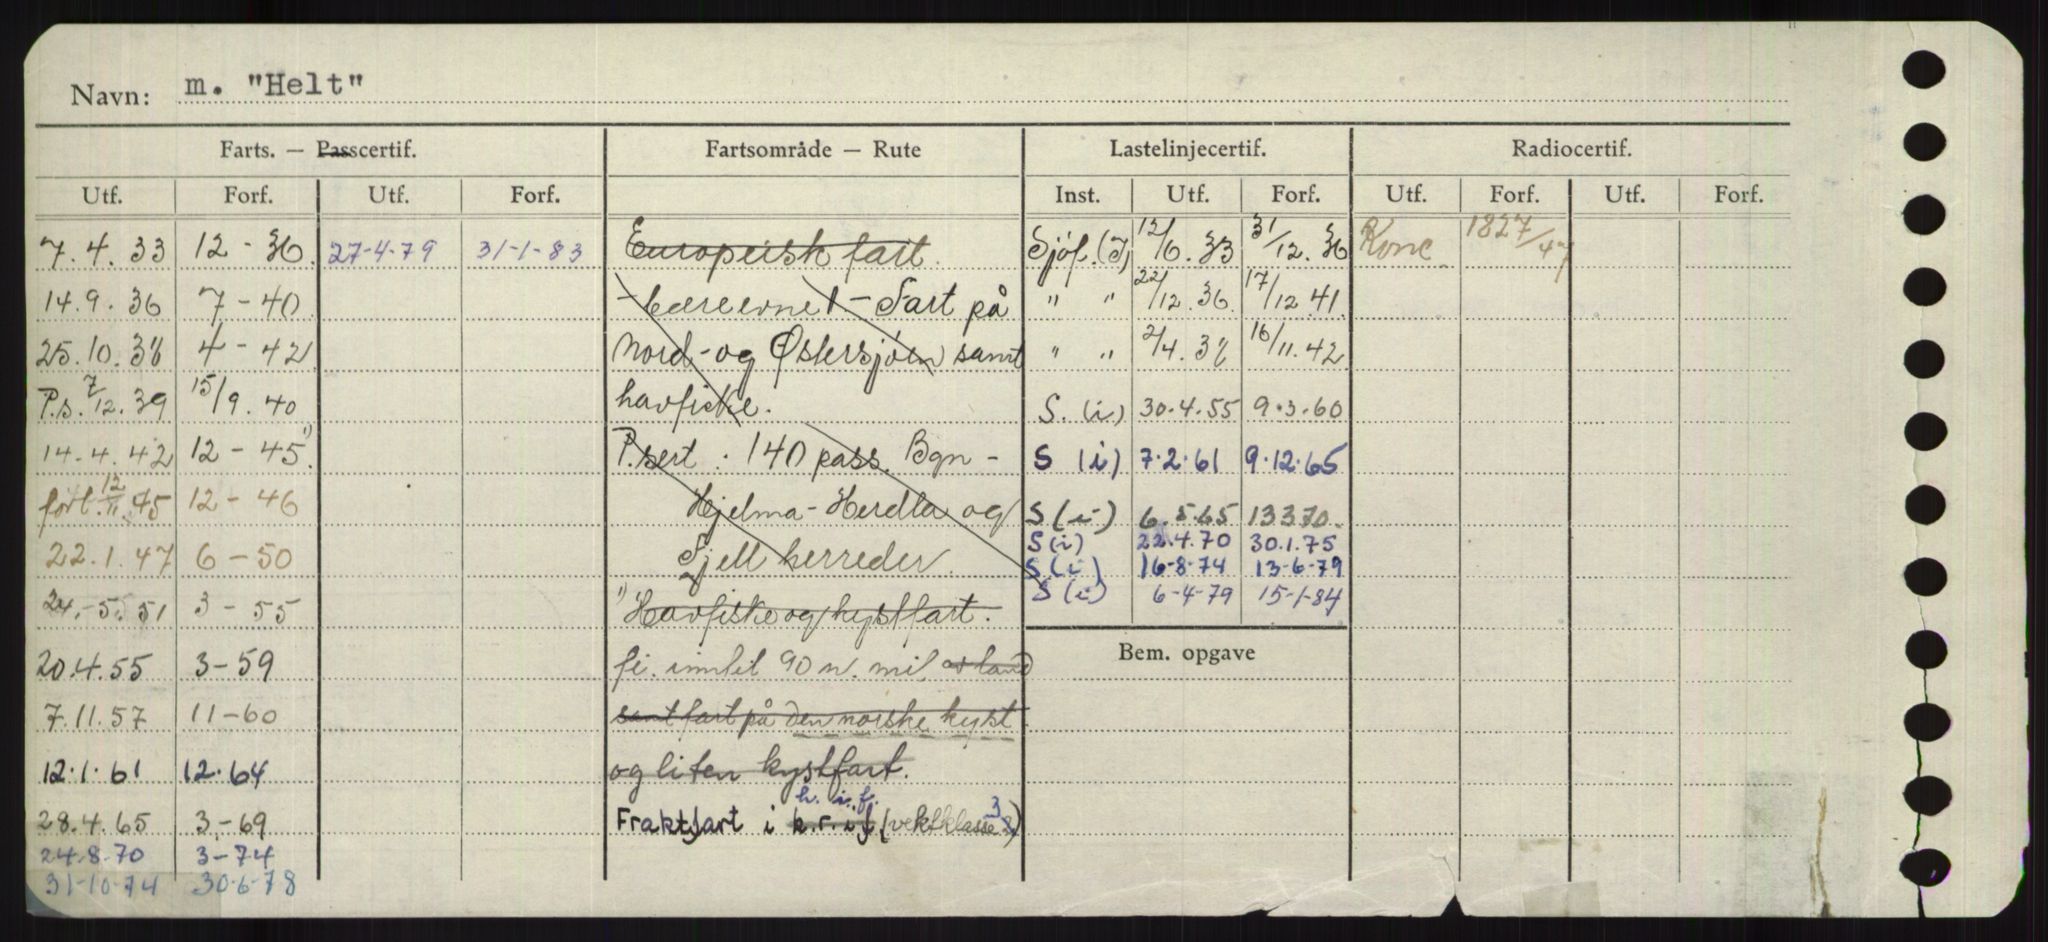 Navn: m. "Helt"
Farts. — Passcertif. Fartsområde — Rute Lastelinjecertif. Radiocertif.
Utf. Forf. Utf. Forf. Inst. Utf. Forf. Utf. Forf. Utf. Forf.
7.4.33 12-36. 27-4-79 31-1-83 Europeisk fart. Sjöf.(I) 12/6.33 31/12.36 Konc. 1827/47
14.9.36 7-40 -bæreevne1.-Fart på " " 22/12.36. 17/12.41.
25.10.38 4-42 Nord-og Østersjøen samt " " 2/4.38 16/11.42.
P.s. 7/12.39 15/9.40 havfiske. S.(i) 30.4.55 9.3.60
14.4.42 12-45.¹⁾ P.sert: 140 pass. Bgn- S (i) 7.2.61 9.12.65
forl. 12/11.45 12-46 Hjelma-Herdla og S(i) 6.5.65 13370.
S(i) 22.4.70 30.1.75
22.1.47 6-50 Fjell herreder. S(i) 16-8-74 13-6-79
S(i) 6-4-79 15-1-84
24.-5.51 3-55 ¹⁾Havfiske og kystfart.
20.4.55 3-59 fi. inntil 90 n. mil av land Bem. opgave
7.11.57 11-60 samt fart på den norske kyst.
12.1.61 12.64 og liten kystfart.
h. i. f. 3
28.4.65 3-69 Fraktfart i k.r.i.f (vektklasse 2)
24.8.70 3-74
31-10-74 30-6-78